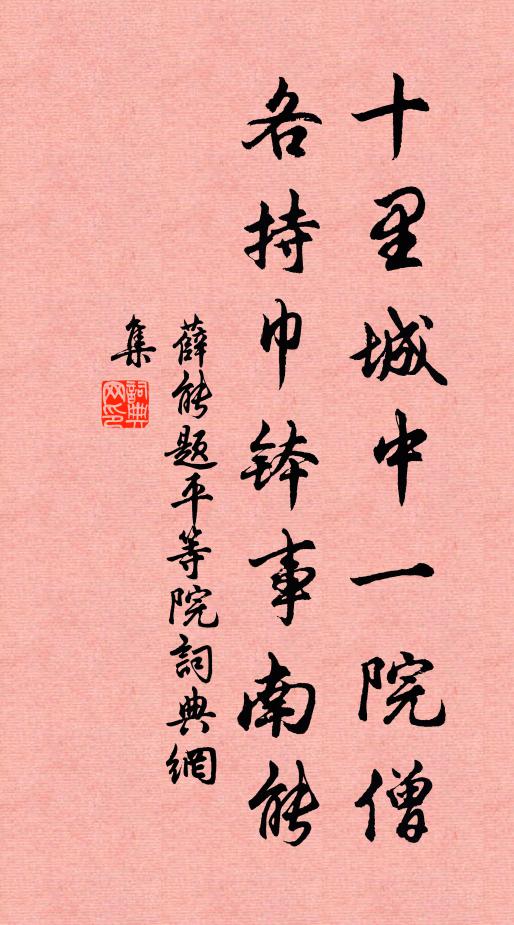 十里城中一院僧
各持巾钵事南能
薛能题平等院詞典網
集
詞典
网印